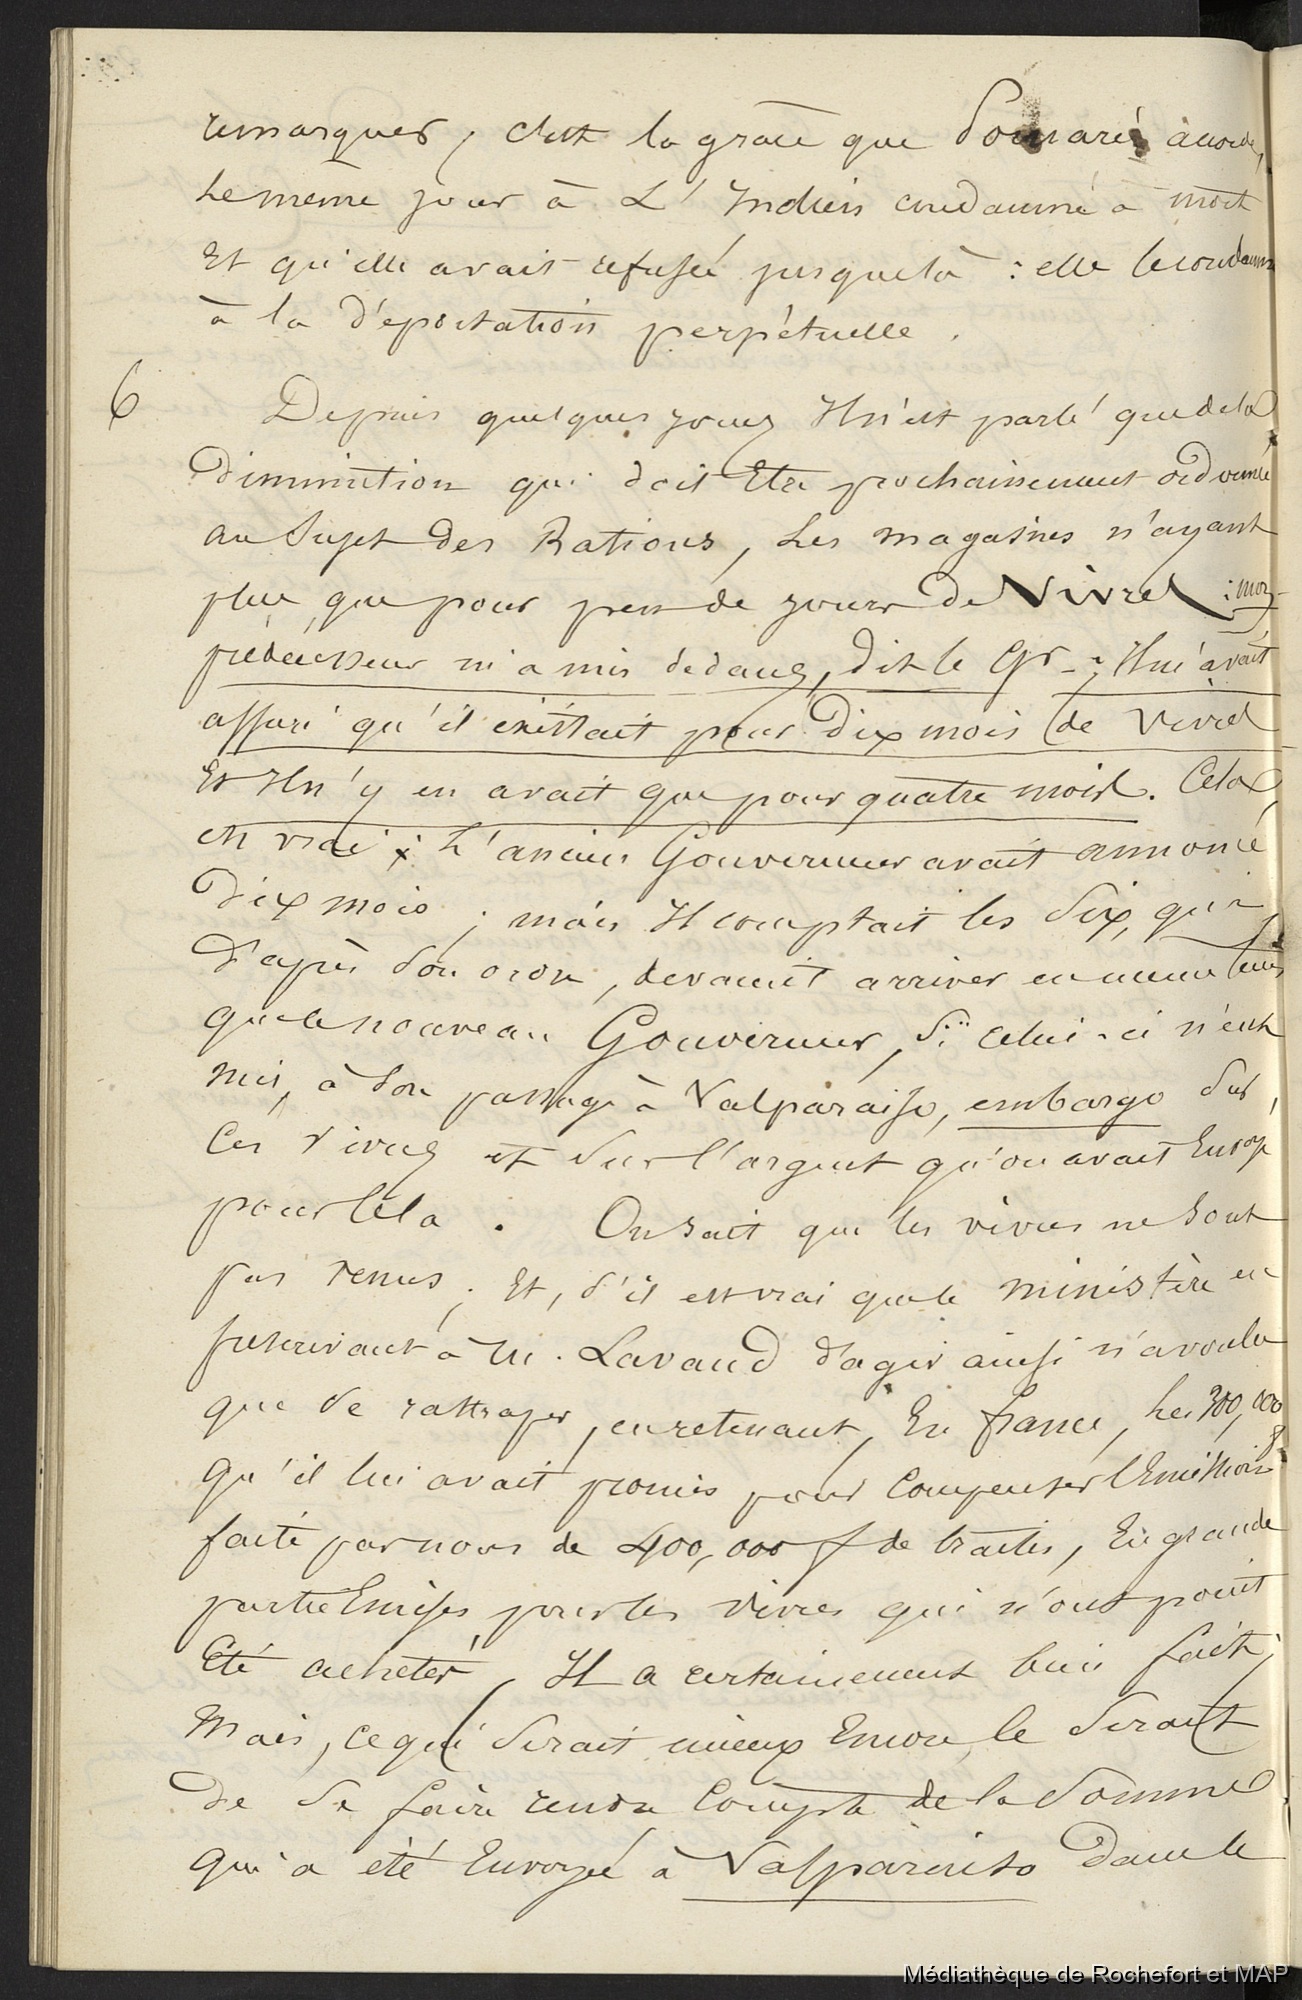 remarquer, c'est la grâce que Pomaré accorde,
le même jour à L'Indien condamné à mort
Et qu'elle avait refusée jusque là : elle le condamne
à la déportation perpétuelle.
6 Depuis quelques jours Il n'est parlé que de la
Diminution qui doit Etre prochainement ordonnée
au Sujet des Rations, Les magasins n'ayant
plus que pour peu de jours de Vivres : mon
prédécesseur m'a mis dedans, dit le Gr : Il m'avait
assuré qu'il existait pour Dix mois de Vivres
Et Il n'y en avait que pour quatre mois. Cela
est vrai ; L'ancien Gouverneur avait annoncé
Dix mois ; mais Il comptait les Six, qui
D'après Son ordre, devaient arriver en même tems
que le nouveau Gouverneur, Si celui-ci n'eut
mis, à Son passage à Valparaiso, embargo Sur
Ces Vivres et Sur l'argent qu'on avait Envoyé
pour Cela. On sait que les vivres ne Sont
pas venus ; Et, S'il est vrai que le ministère en
prescrivant à M. Lavaud d'agir ainsi n'a voulu
que se rattraper, en retenant, En France, Les 300,000
f
qu'il lui avait promis pour Compenser l'Emission
faite par nous de 400,000 f de traites, En grande
partie Emises pour les Vivres qui n'ont point
Eté achetés, Il a certainement bien fait ;
Mais, ce qui Serait mieux Encore, le Serait
De Se faire rendre Compte de la Somme
qui a été Envoyée à Valparaiso Dans le
Médiathèque de Rochefort et MAP